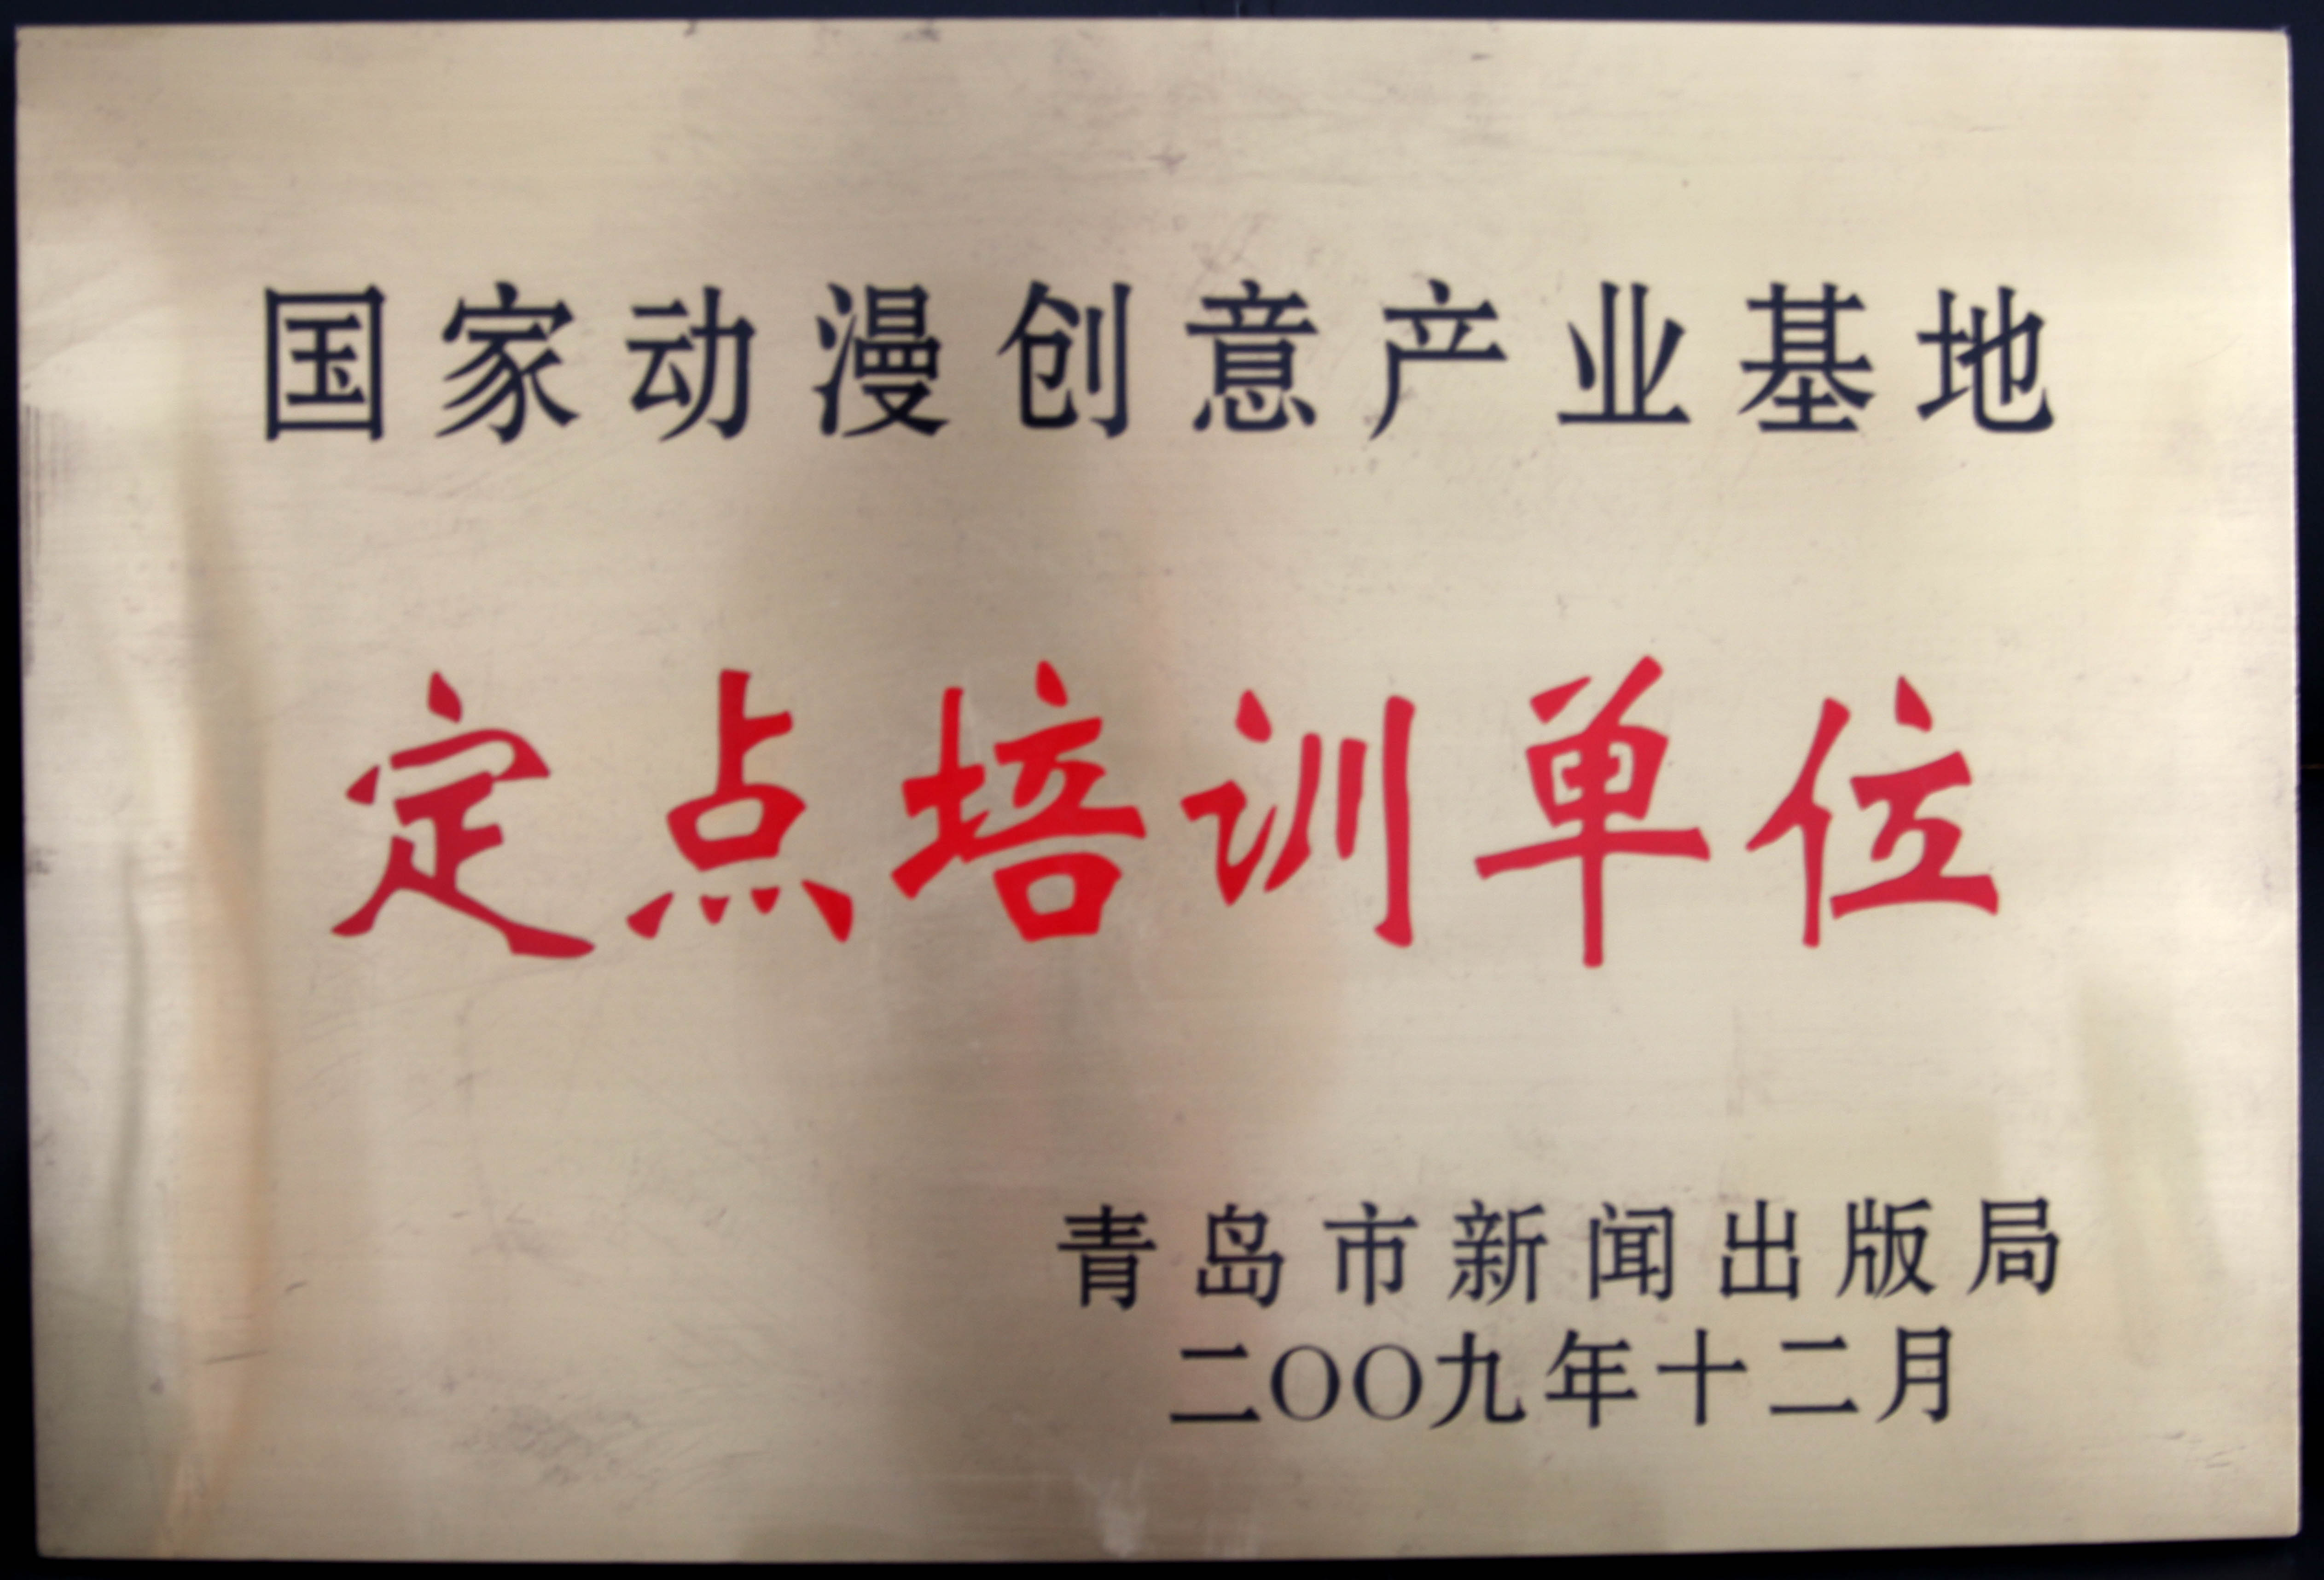 国家动漫创意产业基地
定点培训单位
青岛市新闻出版局
二〇〇九年十二月